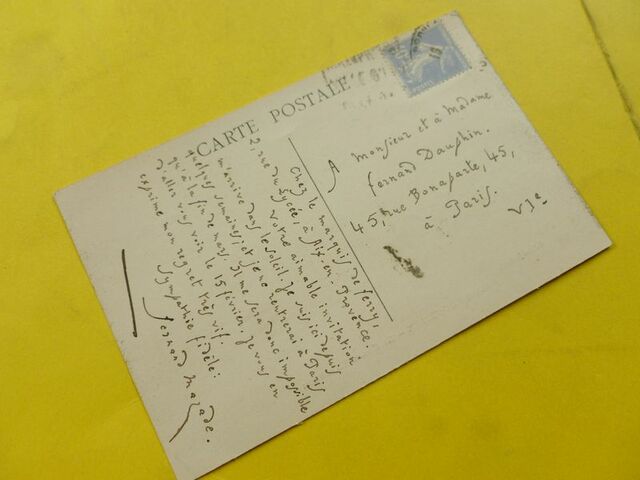 CARTE POSTALE
Chez le marquis de Jerry,
2, rue du Lycée, à Aix-en-Provence.
Votre aimable invitation
m'arrive dans le soleil. Je suis ici depuis
quelques semaines, et je ne rentrerai à Paris
qu'à la fin de mars. Il me sera donc impossible
d'aller vous voir le 15 février. Je vous en
exprime mon regret très vif.
Sympathie fidèle:
Fernand Mazade.
A
Monsieur et à Madame
Fernand Dauphin.
45, rue Bonaparte, 45,
à Paris.
VIe